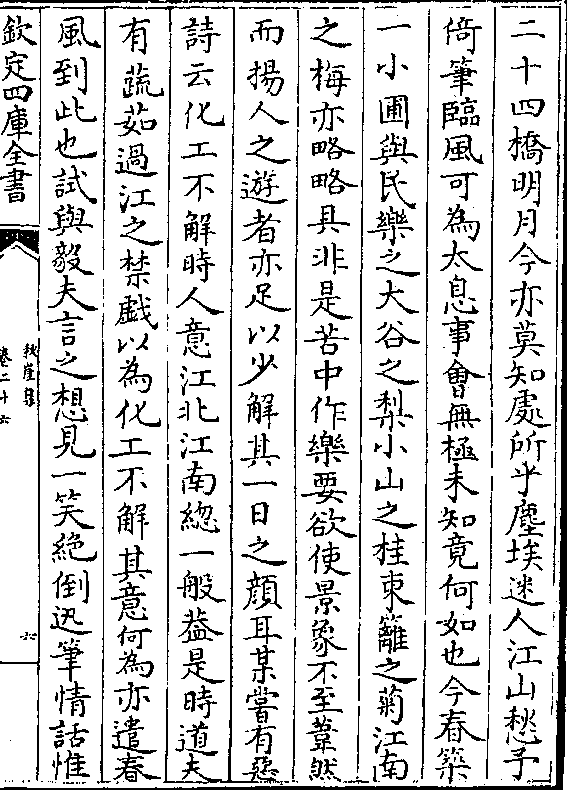 二十四橋明月今亦莫知處所乎塵埃迷人江山愁予
倚筆臨風可為太息事會無極未知竟何如也今春築
一小圃與民樂之大谷之梨小山之桂東籬之菊江南
之梅亦略略具非是苦中作樂要欲使景象不至蕭然
而揚人之遊者亦足以少解其一日之顔耳某嘗有惡
詩云化工不解時人意江北江南總一般葢是時道夫
有蔬茹過江之禁戲以為化工不解其意何為亦遣春
風到此也試與毅夫言之想見一笑絶倒迅筆情話惟
欽定四庫全書
秋崖集
卷二十六
六